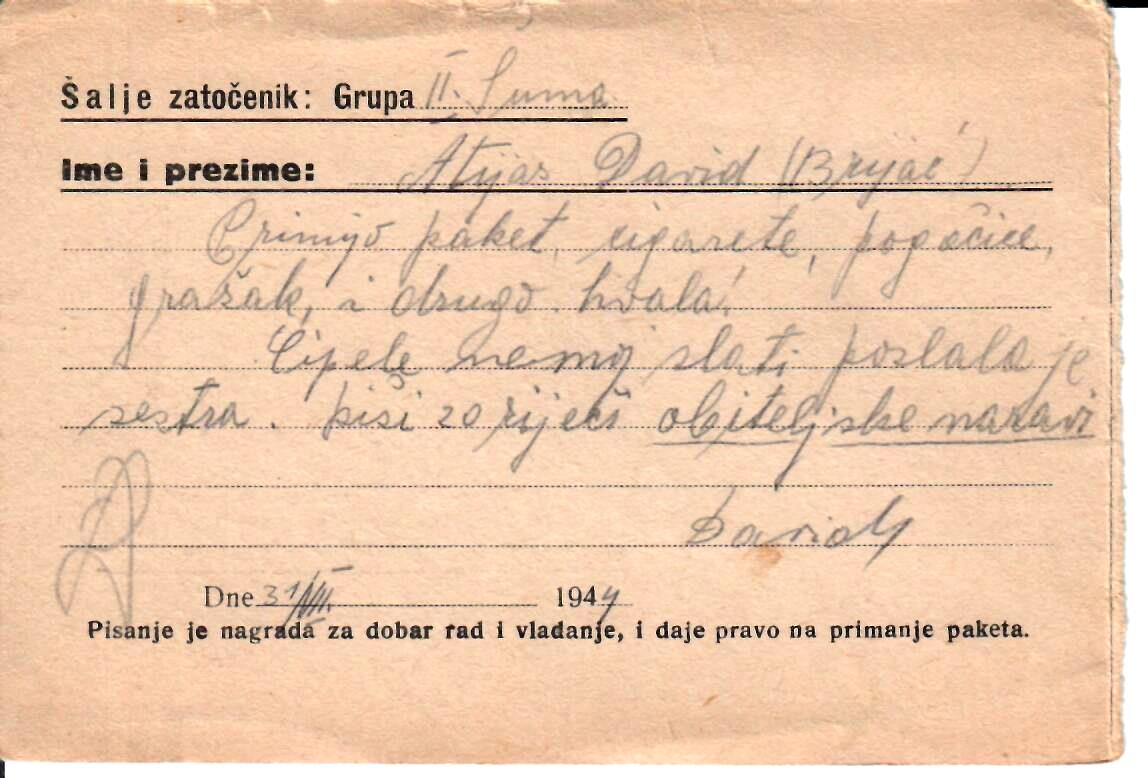 Šalje zatočenik: Grupa II. Šuma
Ime i prezime: Atijas David (Brijač)
Primijo paket, cigarete, pogačice,
grašak, i drugo. hvala!
Cipele nemoj slati poslala je
sestra. piši 20 riječi obiteljske naravi
David
Dne 31/VIII. 1944
Pisanje je nagrada za dobar rad i vladanje, i daje pravo na primanje paketa.